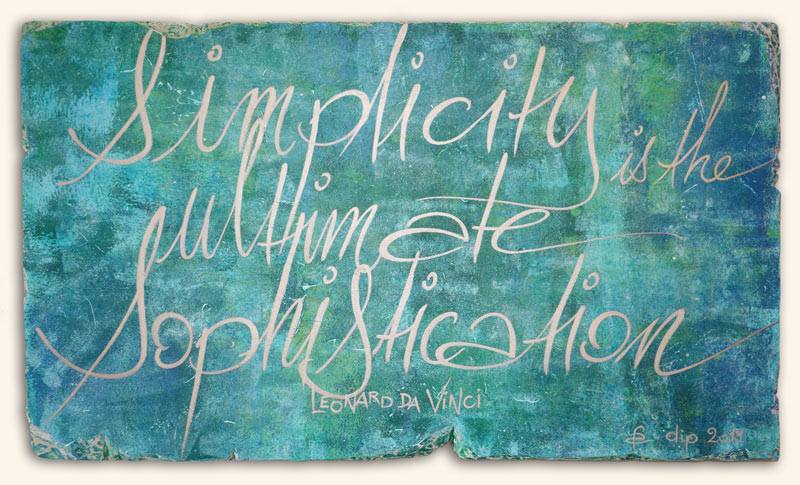 Simplicity is the
ultimate
Sophistication
LEONARD DA VINCI
dip 2019